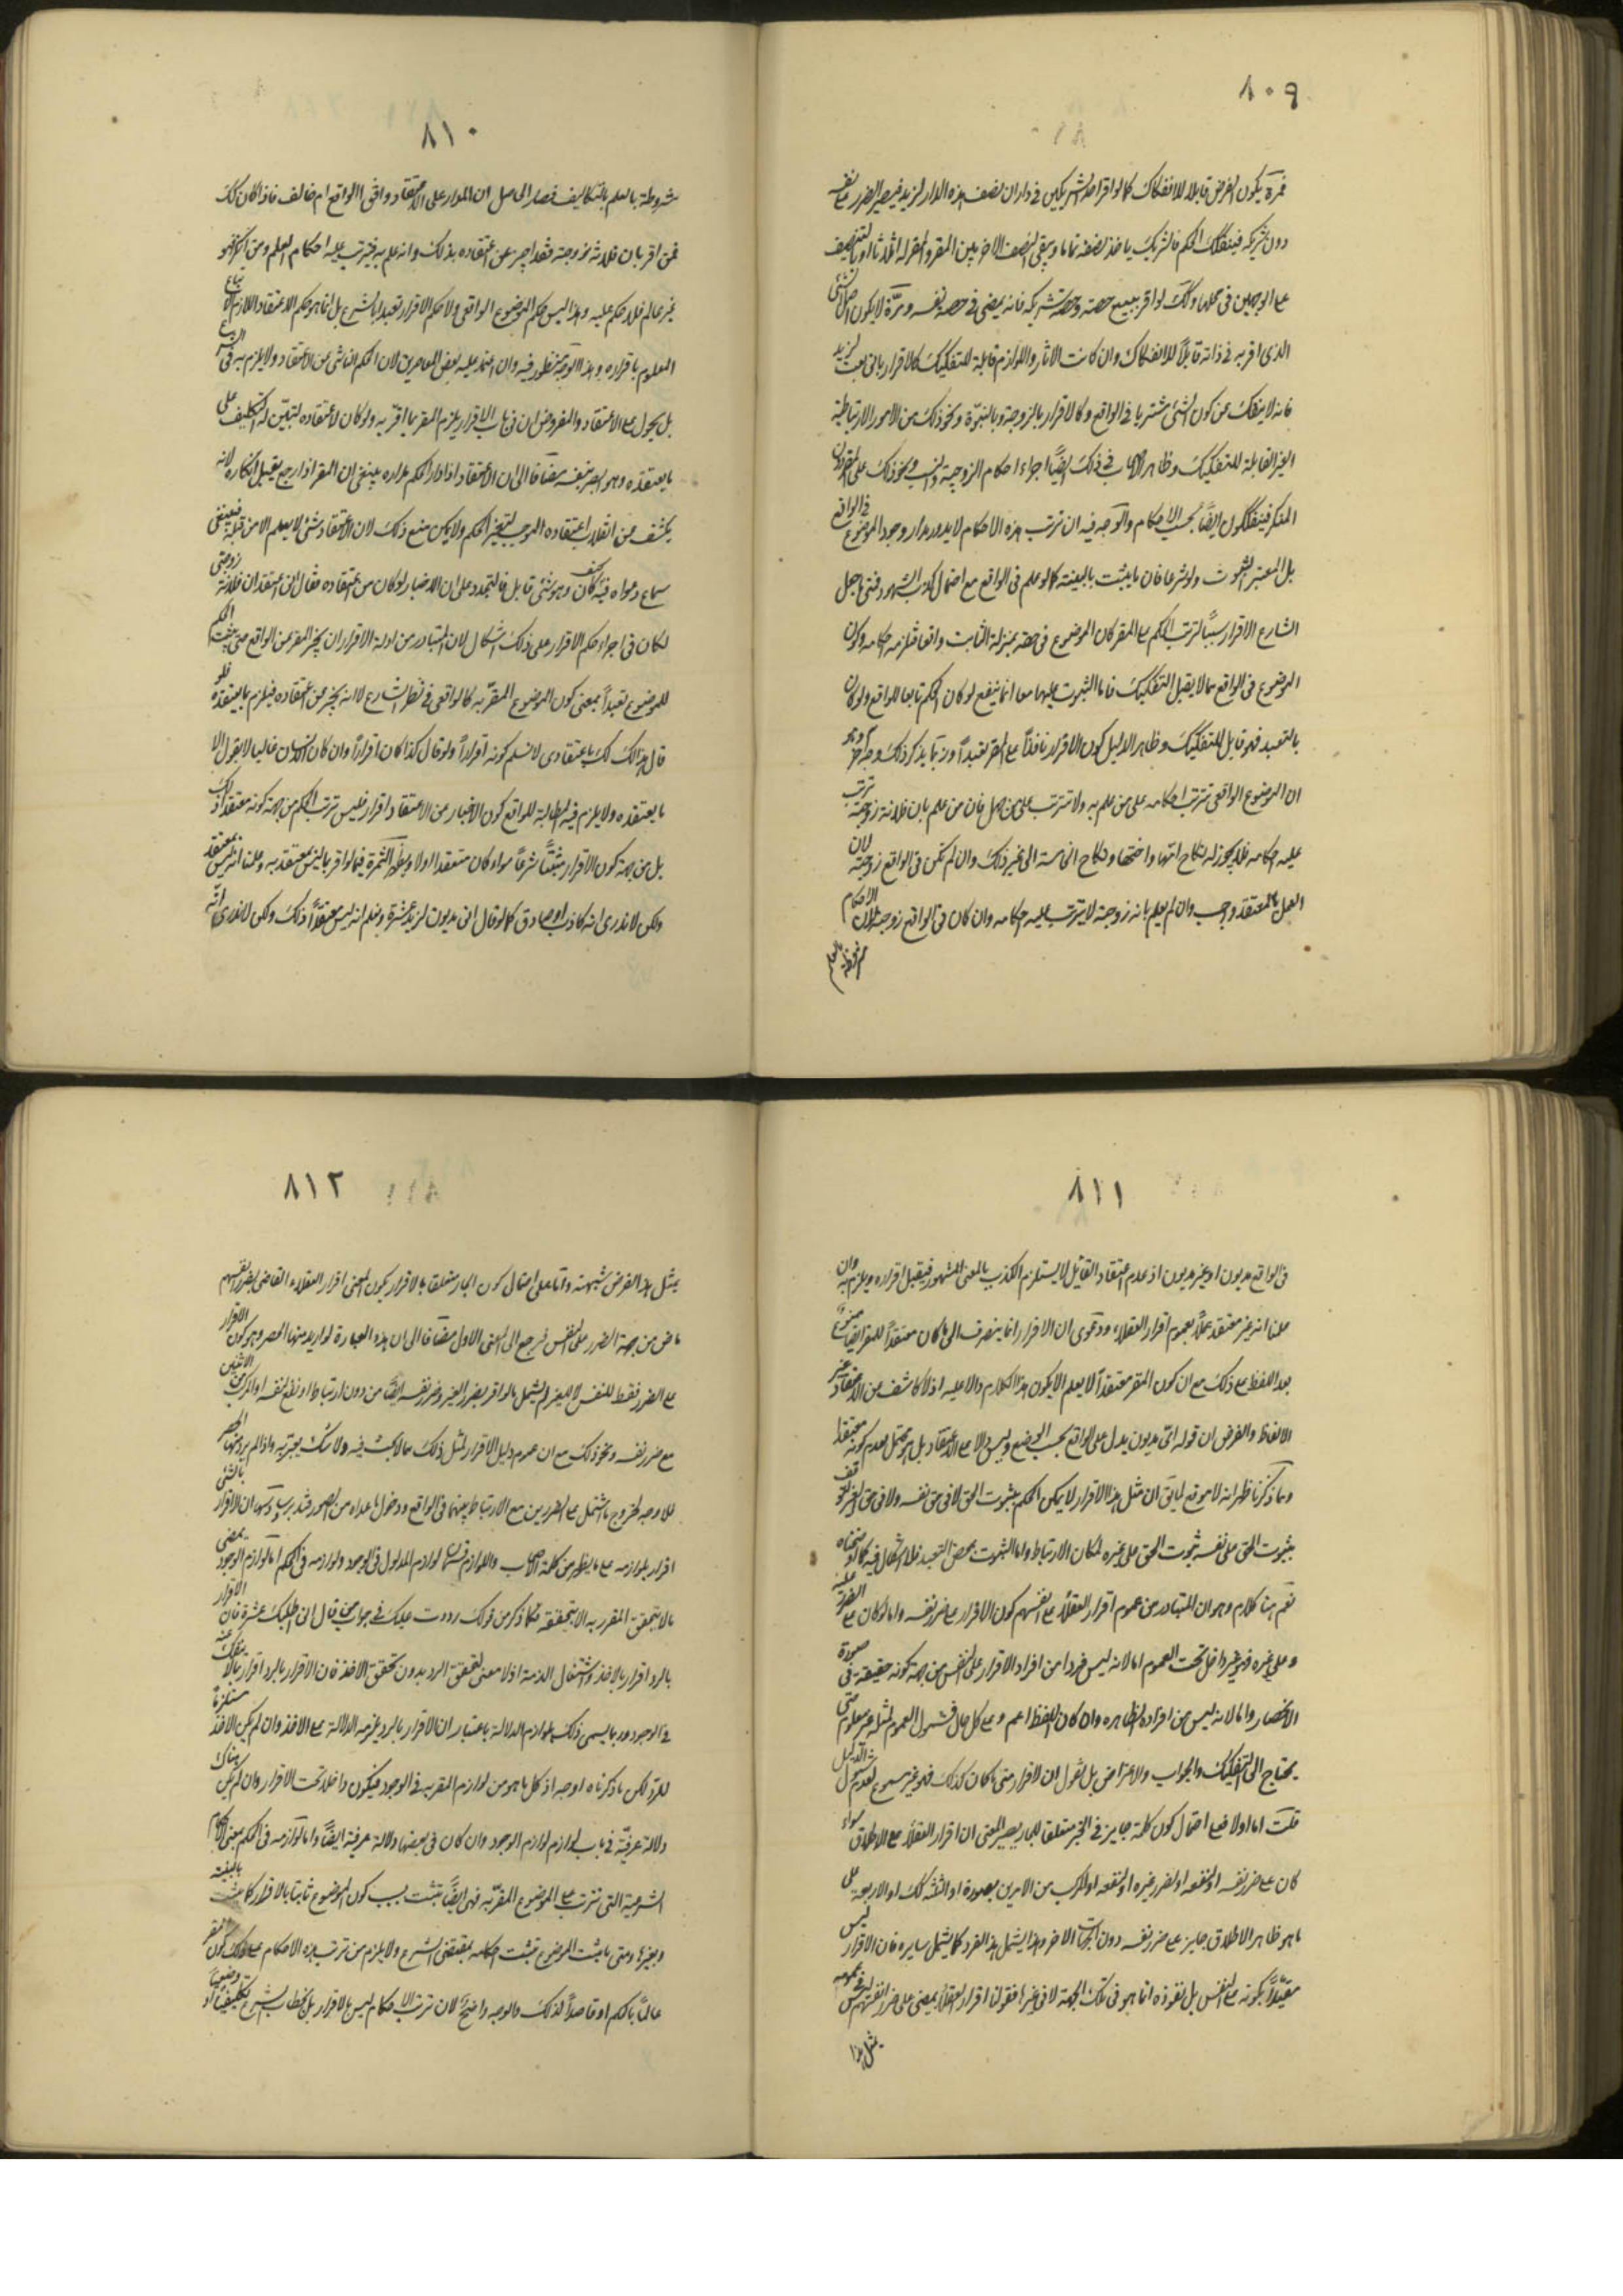 ٨٠٩
فمرة يكون الفرض قابلا للانفكاك كما لو اقر احد الشريكين في دار ان نصف هذه الدار لزيد فيصير الضرر على نفسه
دون شريكه فينفكك الحكم فالشريك ياخذ نصفه تماما ويبقى النصف الاخر بين المقر والمقر له اثلاثا او بالتنصيف
على الوجهين في محلها وكك لو اقر ببيع حصته وحصة شريكه فانه يمضى في حصة نفسه ومرّة لا يكون اصل الشئ
الذى اقر به في ذاته قابلاً للانفكاك وان كانت الاثار واللوازم قابلة للتفكيك كالاقرار بانى بعت لزيد
فانه لا ينفك عن كون الشئ مشتريا في الواقع وكالاقرار بالزوجية وبالبنوّة ونحو ذلك من الامور الارتباطية
الغير القابلة للتفكيك وظاهر الاصحاب في ذلك ايضاً اجراء احكام الزوجية والنسب ونحو ذلك على المقر دون
المنكر فيتفككون ايضاً بحسب الاحكام والوجه فيه ان ترتب هذه الاحكام لا يدور مدار وجود الموضوع في الواقع
بل المعتبر الثبوت ولو شرعا فان ما يثبت بالبينة كما لو علم في الواقع مع احتمال كذب الشهود فمتى ما جعل
الشارع الاقرار سبباً لترتب الحكم على المقر كان الموضوع في حقه بمنزلة الثابت واقعا فتلزمه احكامه وكون
الموضوع في الواقع مما لا يقبل التفكيك فاما الثبوت عليهما معا انما ينفع لو كان الحكم تابعا للواقع ولو كان
بالتعبد فهو قابل للتفكيك وظاهر الدليل كون الاقرار نافذاً على المقر تعبداً وربما يذكر لذلك وجه آخر وهو
ان الموضوع الواقعى تترتب احكامه على من علم به ولا تترتب على من جهل فان من علم بان فلانة زوجته ترتب
عليه احكامه فلا يجوز له نكاح امها واختها ونكاح الخامسة الى غير ذلك وان لم تكن في الواقع زوجته لان
العمل بالمعتقد واجب وان لم يعلم بانه زوجته لا يترتب عليه احكامه وان كان في الواقع زوجته لان الاحكام
مشروطة بالعلم
٨١٠
مشروطة بالعلم بالتكاليف فصار الحاصل ان المدار على الاعتقاد وافق الواقع ام خالف فاذا كان كك
فمن اقر بان فلانة زوجته فقد اخبر عن اعتقاده بذلك وانه علم به فيترتب عليه احكام العلم ومن انكر فهو
غير عالم فلا حكم عليه وهذا ليس حكم الموضوع الواقعى ولا حكم الاقرار تعبدا بالشرع بل انما هو حكم الاعتقاد اللازم الاتباع
المعلوم باقراره وهذا الوجه منظور فيه وان اعتمد عليه بعض المعاصرين لان الحكم الناشئ عن الاعتقاد ولا يلزم به في الشرع
بل يحول على الاعتقاد والمفروض ان في باب الاقرار يلزم المقر بما اقرّ به ولو كان لاعتقاده لتبيّن له التكليف على
ما يعتقده وهو ابصر بنفسه مضافا الى ان الاعتقاد اذا دار الحكم مداره ينبغى ان المقر اذا رجع يقبل انكاره لانه
يكشف عن انقلاب اعتقاده الموجب لتغير الحكم ولا يمكن منع ذلك لان الاعتقاد شئ لا يعلم الا من قبله فينبغى
سماع دعواه فيه كيف كان وهو شئ قابل للتجدد على ان الاخبار لو كان عن اعتقاده فقال انى اعتقد ان فلانة زوجتى
لكان في اجراء حكم الاقرار على ذلك اشكال لان المتبادر من ادلة الاقرار ان يخبر المقر عن الواقع حتى يثبت الحكم
للموضوع تعبداً بمعنى كون الموضوع المقرّ به كالواقعى في نظر الشارع لا انه يخبر عن اعتقاده فيلزم بما يعتقده فلو
قال هذا لك باعتقادى لا نسلم كونه اقراراً ولو قال كذا كان اقراراً وان كان الانسان غالبا لا يقول الا
ما يعتقده ولا يلزم فيه المطابقة للواقع كون الاخبار عن الاعتقاد اقرار فليس ترتب الحكم من جهة كونه معتقدا لذلك
بل من جهة كون الاقرار مثبتاً شرعاً سواء كان معتقدا اولا ويظهر الثمرة فيما لو اقر بما ليس بمعتقد به وعلمنا انه ليس بمعتقد
ولكن لا ندرى انه كاذب او صادق كما لو قال انى مديون لزيد عشرة ونعلم انه ليس معتقداً ذلك ولكن لا ندرى انّه
٨١١
في الواقع مديون او غير مديون اذ عدم اعتقاد القائل لا يستلزم الكذب بالمعنى المشهور فيقبل اقراره ويلزم به وان
علمنا انه غير معتقد عملاً بعموم اقرار العقلاء ودعوى ان الاقرار انما ينصرف الى ما كان معتقداً للمقر ايضا ممنوع
بعد اللفظ مع ذلك مع ان كون المقر معتقداً لا يعلم الا بكون هذا الكلام دالا عليه اذ لا كاشف عن الاعتقاد غير
الالفاظ والفرض ان قوله انى مديون يدل على الواقع بحسب الوضع وليس دالا على الاعتقاد بل هو محتمل لعدم كونه معتقدا
ومما ذكرنا ظهر انه لا موقع لما يق ان مثل هذا الاقرار لا يمكن الحكم بثبوت الحق لا في حق نفسه ولا في حق الغير لتوقف
ثبوت الحق على نفسه ثبوت الحق على غيره لمكان الارتباط واما الثبوت بمحض التعبد فلا اشكال فيه كما اوضحناه
نعم هنا كلام وهو ان المتبادر من عموم اقرار العقلاء على انفسهم كون الاقرار على ضرر نفسه واما لو كان على الضرر عليه
وعلى غيره فهو غير داخل تحت العموم اما لانه ليس فردا من افراد الاقرار على النفس من جهة كونه حقيقة في صورة
الانحصار واما لانه ليس من افراده الظاهره وان كان اللفظ اعم وعلى كل حال فشمول العموم لمثله غير معلوم حتى
يحتاج الى التفكيك والجواب والاعتراض بل نقول ان الاقرار متى ما كان كذلك فهو غير مسموع لعدم شمول الدليل
قلت اما اولا فمع احتمال كون كلمة جايز في الخبر متعلقا للجار يصير المعنى ان اقرار العقلاء مع الاطلاق سواء
كان على ضرر نفسه او لنفعه او لضرر غيره او لنفعه او المركب من الامرين بصوره او الثلثة كك او الاربعة على
ما هو ظاهر الاطلاق جايز على ضرر نفسه دون الجهات الاخر وهذا يشمل هذا الفرد كما يشمل سايره فان الاقرار ليس
مقيّداً بكونه على النفس بل نفوذه انما هو في تلك الجهة لا في غيرها فقولنا اقرار العقلاء يمضى على ضرر انفسهم ليس في عمومه
يمثل هذا
٨١٢
يمثل هذا الفرض شبهته واما على احتمال كون الجار متعلقا بالاقرار يكون المعنى اقرار العقلاء القاضى بضرر انفسهم
ماض من جهة الضرر على النفس فيرجع الى المعنى الاول مضافا الى ان هذه العبارة لو اريد منها الحصر وهو كون الاقرار
على الضرر فقط للنفس لا للغير لم يشمل ما لو اقر بضرر الغير وضرر نفسه ايضاً من دون ارتباط او نفع لنفسه او المركب من الاثنين
مع ضرر نفسه ونحو ذلك مع ان عموم دليل الاقرار لمثل ذلك مما لا بحث فيه ولا شك يعتريه واذا لم يرد منها الحصر
فلا وجه لخروج ما اشتمل على الضررين مع الارتباط بينهما في الواقع ودخول ما عداه من الصور فتدبر وثالثها ان الاقرار بالشئ
اقرار بلوازمه على ما يظهر من كلمة الاصحاب واللوازم قسمان لوازم المدلول في الوجود ولوازمه في الحكم اما لوازم الوجود بمعنى
ما لا يتحقق المقر به الا بتحققه فكما ذكر من قولك رددت عليك في جواب من قال ان لى عليك عشرة فان الاقرار
بالرد اقرار بالاخذ واشتغال الذمة اذ لا معنى لتحقق الرد بدون تحقق الاخذ فان الاقرار بالرد اقرار بما لا ينفك عنه
في الوجود وربما يسمى ذلك بلوازم الدلالة باعتبار ان الاقرار بالرد يلزمه الدلالة على الاخذ وان لم يكن الاخذ مستلزماً
للرد لكن ما ذكرناه اوجه اذ كل ما هو من لوازم المقر به في الوجود فيكون داخلا تحت الاقرار وان لم يكن هناك
دلالة عرفيّة في باب لوازم لوازم الوجود وان كان في بعضها دلالة عرفية ايضاً واما لوازمه في الحكم بمعنى الاحكام
الشرعية التى تترتب على الموضوع المقرّ به فهى ايضاً تثبت بسبب كون الموضوع ثابتا بالاقرار كما يثبت بالبينة
وبغيرها ومتى ما ثبت الموضوع تثبت احكامه بمقتضى الشرع ولا يلزم من ترتب هذه الاحكام على ذلك كون المقر
عالماً بالحكم او قاصداً لذلك والوجه واضح لان ترتب الاحكام ليس بالاقرار بل بخطاب الشرع تكليفياً او وضعياً